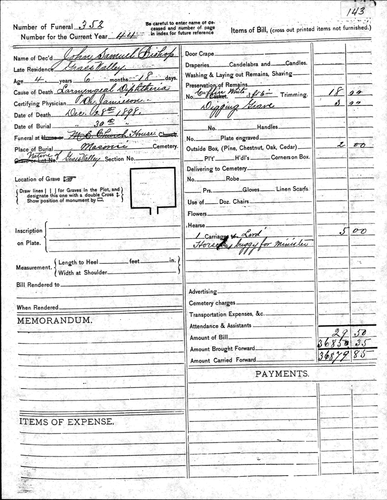 143
Number of Funeral 353
Number for the Current Year 44
Be careful to enter name of deceased and number of page in index for future reference
Items of Bill, (cross out printed items not furnished.)
Name of Dec'd John Samuel Bishop
Late Residence Grass Valley
Age 4 years 6 months 18 days.
Cause of Death Laryngeal Diphtheria
Certifying Physician Dr. Jamieson
Date of Death Dec. 28th 1898.
Date of Burial " 30th "
Funeral at M.E. Church House
Place of Burial Masonic Cemetery.
Native of Grass Valley Section No.
Location of Grave
Draw lines | | for Graves in the Plot, and designate this one with a double Cross
Show position of monument by
Inscription on Plate.
Measurement. Length to Heel feet in.
Width at Shoulder
Bill Rendered to
When Rendered
MEMORANDUM.
ITEMS OF EXPENSE.
Door Crape
Draperies Candelabra and Candles
Washing & Laying out Remains, Shaving
Preservation of Remains
No. Coffin White 3/9 in Trimming. 18 00
Digging Grave
No. Handles
Plate engraved
Outside Box, (Pine, Chestnut, Oak, Cedar) 2 00
PIY H'dl's Corners on Box.
Delivering to Cemetery
No. Robe
Prs. Gloves Linen Scarfs
Use of Doz. Chairs
Flowers
Hearse
1 Carriages 5 00
Horse & buggy for Minister
Advertising
Cemetery charges
Transportation Expenses, &c.
Attendance & Assistants
Amount of Bill 29 50
Amount Brought Forward 36850 35
Amount Carried Forward 36879 85
PAYMENTS.